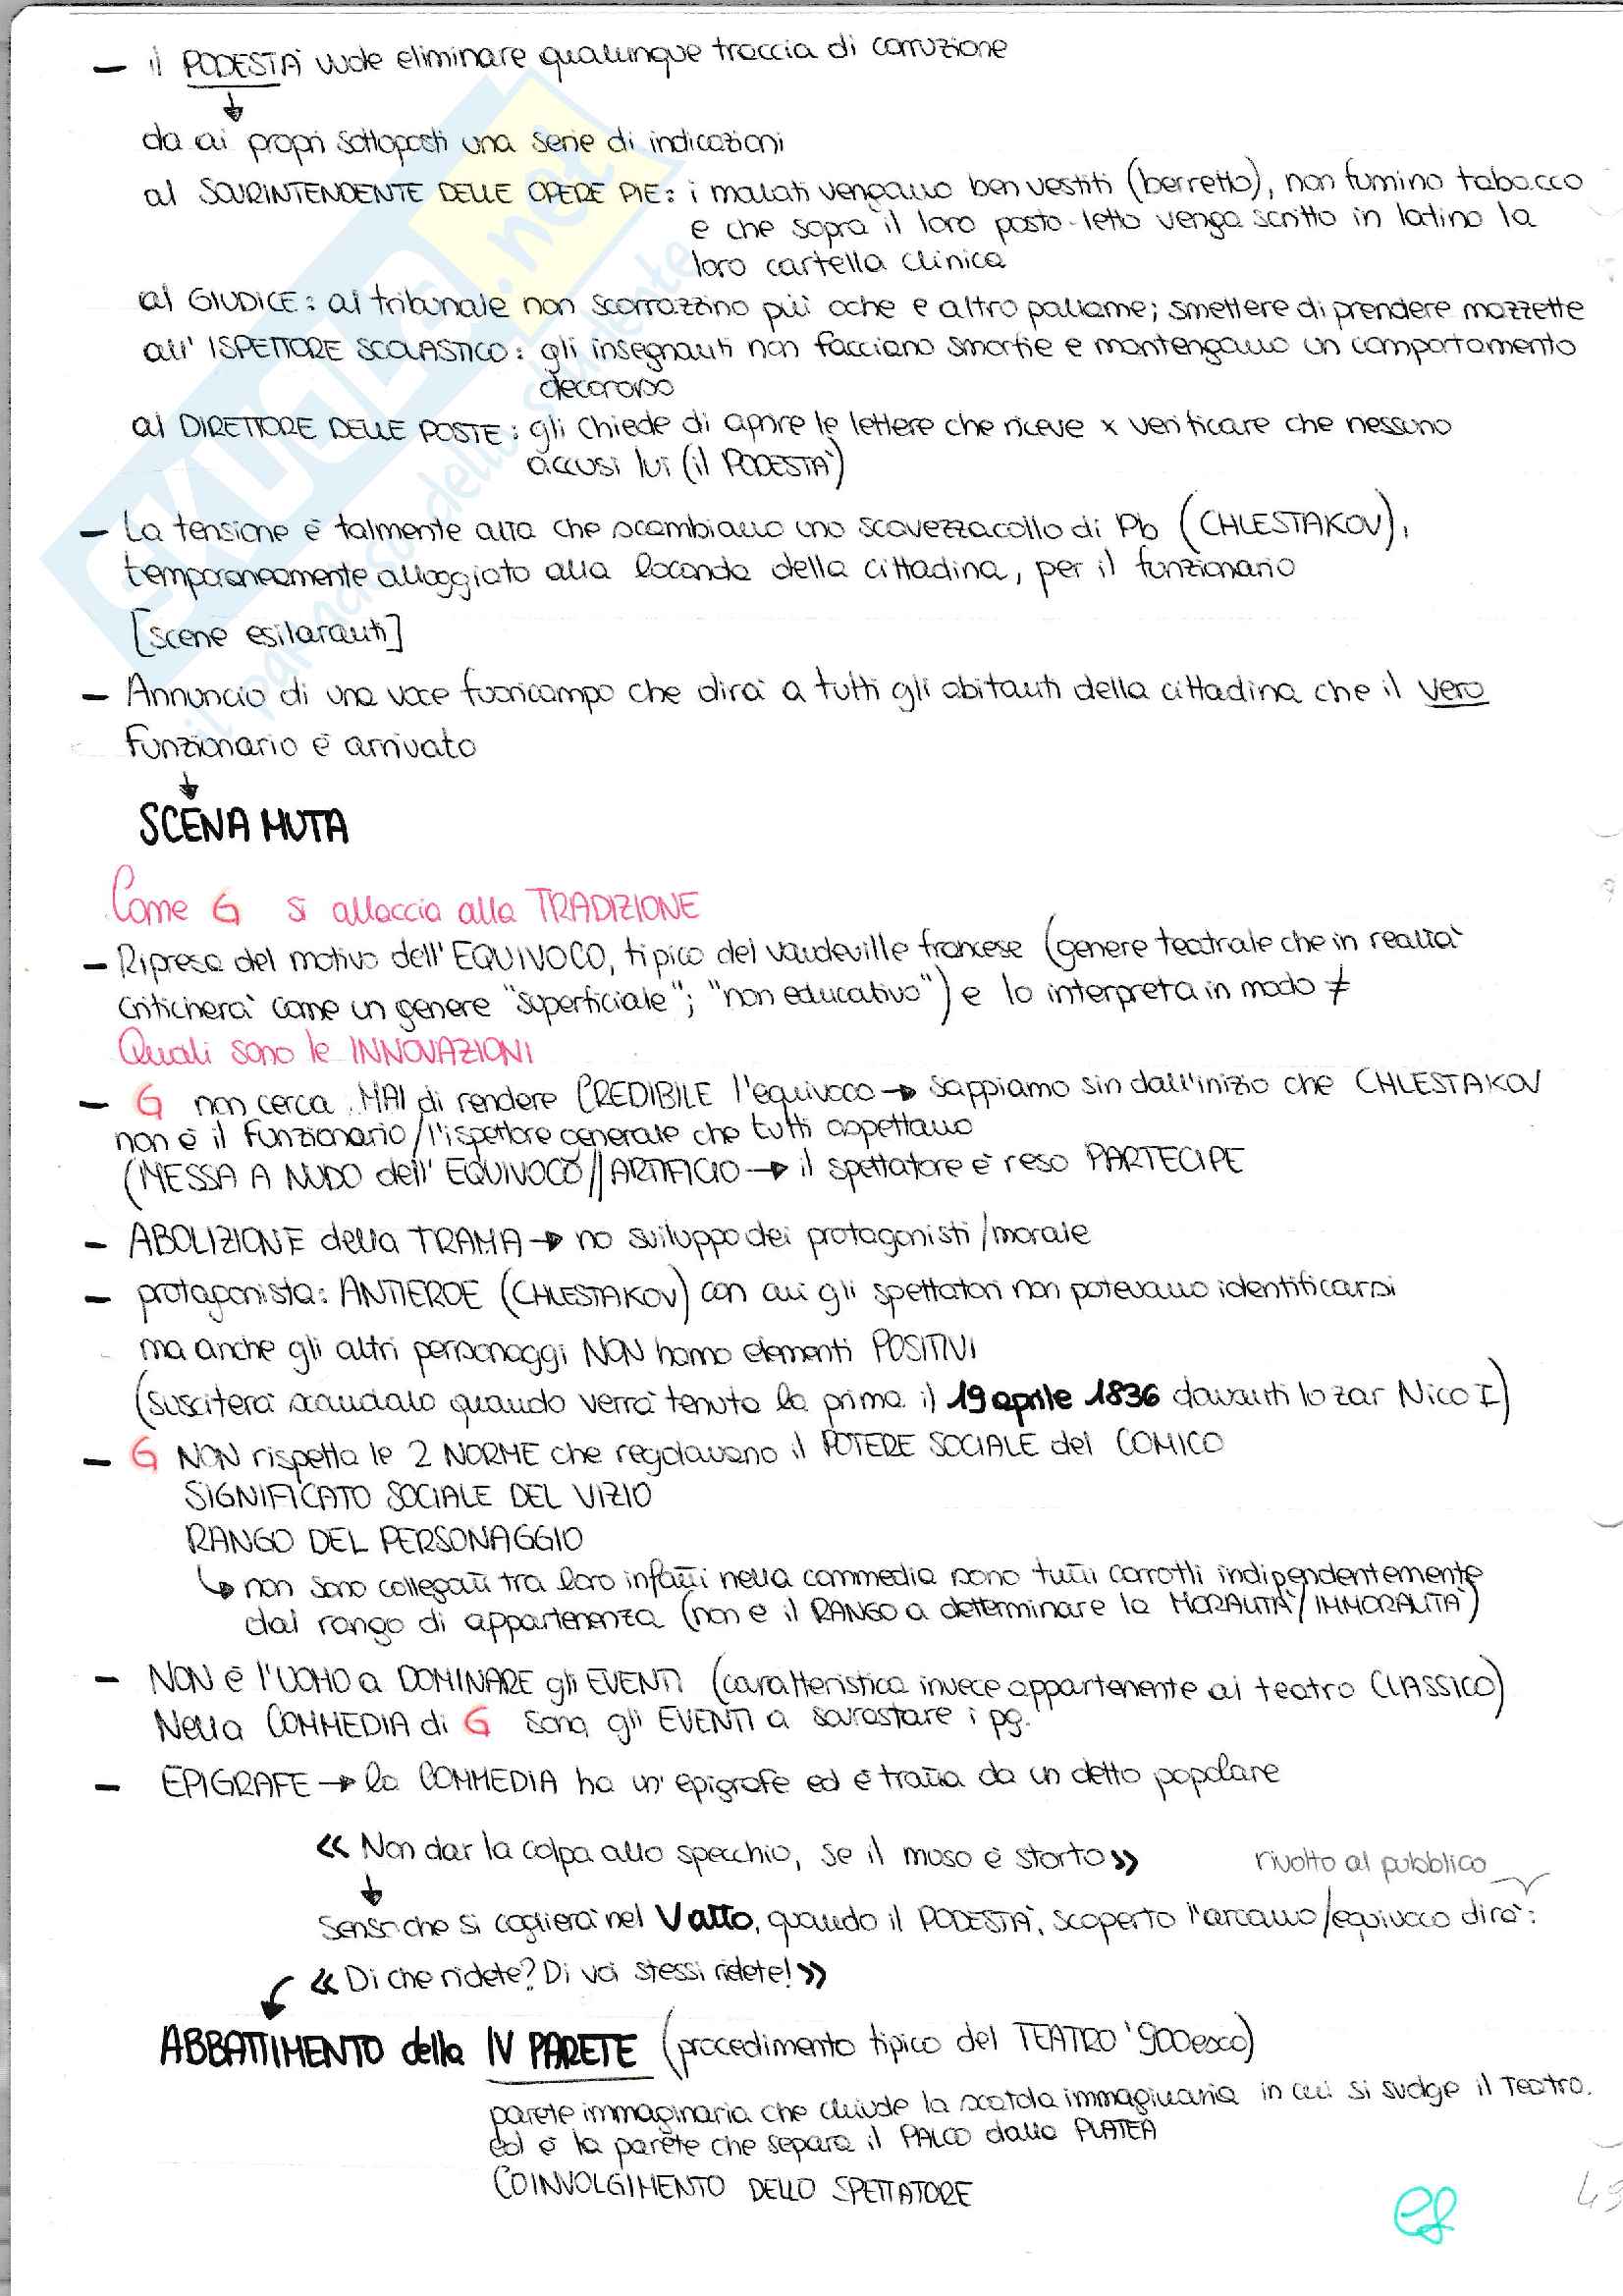 – il PODESTÀ vuole eliminare qualunque traccia di corruzione
↓
da ai propri sottoposti una serie di indicazioni
al SOVRINTENDENTE DELLE OPERE PIE: i malati vengano ben vestiti (berretto), non fumino tabacco
e che sopra il loro posto-letto venga scritto in latino la
loro cartella clinica
al GIUDICE: al tribunale non scorrazzino più oche e altro pollame; smettere di prendere mazzette
all'ISPETTORE SCOLASTICO: gli insegnanti non facciano smorfie e mantengano un comportamento
decoroso
al DIRETTORE DELLE POSTE: gli chiede di aprire le lettere che riceve x verificare che nessuno
accusi lui (il PODESTÀ)
– La tensione è talmente alta che scambiano uno scavezzacollo di Pb (CHLESTAKOV),
temporaneamente alloggiato alla locanda della cittadina, per il funzionario
[scene esilaranti]
– Annuncio di una voce fuoricampo che dirà a tutti gli abitanti della cittadina che il vero
funzionario è arrivato
↓
SCENA MUTA
Come G si allaccia alla TRADIZIONE
– Ripresa del motivo dell'EQUIVOCO, tipico del vaudeville francese (genere teatrale che in realtà
criticherà come un genere "superficiale"; "non educativo") e lo interpreta in modo ≠
Quali sono le INNOVAZIONI
– G non cerca MAI di rendere CREDIBILE l'equivoco → sappiamo sin dall'inizio che CHLESTAKOV
non è il funzionario/l'ispettore generale che tutti aspettano
(MESSA A NUDO dell'EQUIVOCO//ARTIFICIO → il spettatore è reso PARTECIPE
– ABOLIZIONE della TRAMA → no sviluppo dei protagonisti/morale
– protagonista: ANTIEROE (CHLESTAKOV) con cui gli spettatori non potevano identificarsi
ma anche gli altri personaggi NON hanno elementi POSITIVI
(susciterà scandalo quando verrà tenuta la prima il 19 aprile 1836 davanti lo zar Nico I)
– G NON rispetta le 2 NORME che regolavano il POTERE SOCIALE del COMICO
SIGNIFICATO SOCIALE DEL VIZIO
RANGO DEL PERSONAGGIO
↳ non sono collegati tra loro infatti nella commedia sono tutti corrotti indipendentemente
dal rango di appartenenza (non è il RANGO a determinare la MORALITÀ/IMMORALITÀ)
– NON è l'UOMO a DOMINARE gli EVENTI (caratteristica invece appartenente al teatro CLASSICO)
Nella COMMEDIA di G sono gli EVENTI a sovrastare i pg.
– EPIGRAFE → la COMMEDIA ha un'epigrafe ed è tratta da un detto popolare
« Non dar la colpa allo specchio, se il muso è storto»
rivolto al pubblico
↓
Senso che si coglierà nel V atto, quando il PODESTÀ, scoperto l'arcano/equivoco dirà:
« Di che ridete? Di voi stessi ridete!»
ABBATTIMENTO della IV PARETE (procedimento tipico del TEATRO '900esco)
parete immaginaria che chiude la scatola immaginaria in cui si svolge il teatro.
ed è la parete che separa il PALCO dalla PLATEA
COINVOLGIMENTO DELLO SPETTATORE